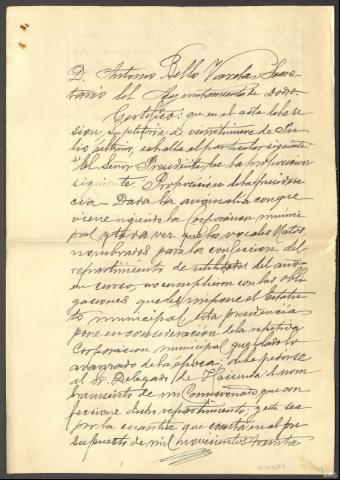 D. Antonio Bello Varela Secre
tario del Ayuntamiento de Dodro.
Certifico: que en el acta de la se
sion supletoria de veintinueve de Ju
lio ultimo, se halla el particular siguiente:
"El Señor Presidente, la proposicion
siguiente. Proposicion de la presiden
cia = Dada la anomalia con que
viene la Corporacion munici
pal y de ver que los vocales Natos,
nombrados para la confeccion del
repartimiento de utilidades del año
en curso, no cumplieron con las obli
gaciones que les impone el Estatu
to municipal esta presidencia
pone en consideracion de la respetiva
Corporacion municipal que dado lo
avanzado de la época, debe pedirse
al Sr. Delegado de Hacienda el nom
bramiento de un Comisionado que con
feccione dicho repartimiento, y este sea
por la cuantia que consta en el pre
supuesto de mil novecientos treinta